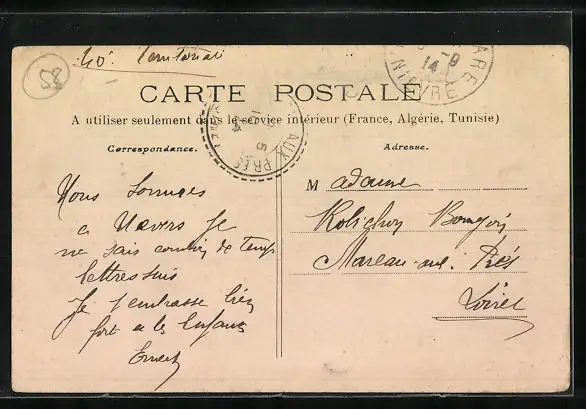 40e Territorial
58
GARE
NIÈVRE
14
CARTE POSTALE
A utiliser seulement dans le service intérieur (France, Algérie, Tunisie)
AUX PRÉS
Correspondance.
Adresse.
Nous sommes
a Nevers je
ne sais combien de temps
lettre suis
Je t'embrasse bien
fort et les Enfants
Ernest
Madame
Rolichon Bourgoin
Mareau-aux-Prés
Loiret